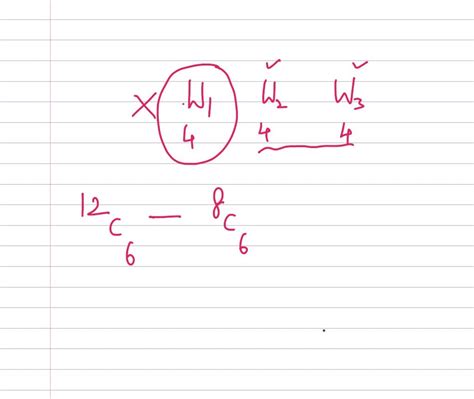 X W₁ W₂ ✓ W₃ ✓
4 4 4
¹²C₆ — ⁸C₆